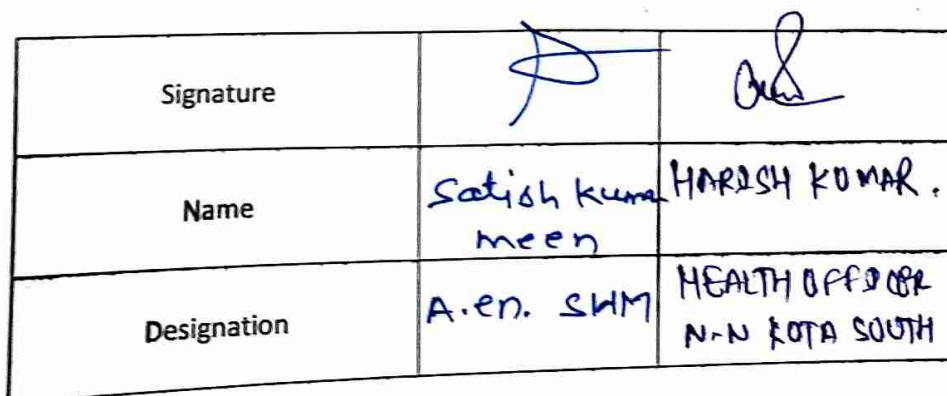 Signature
Name
Satish Kuma
meen
HARISH KUMAR.
Designation
A.en. SHM
HEALTH OFFICER
N-N KOTA SOUTH